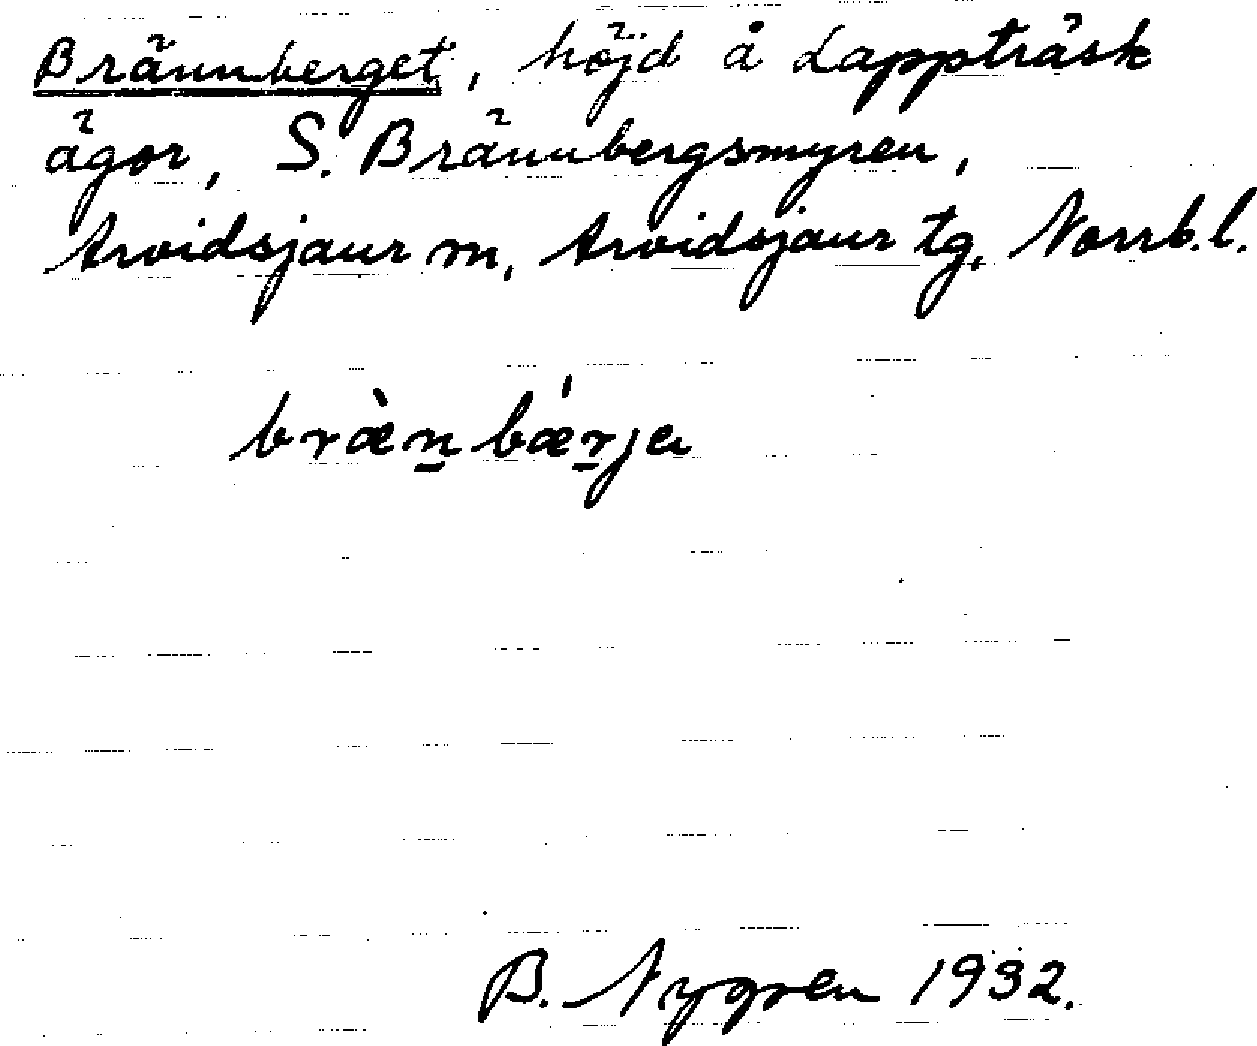 Brännberget, höjd å Lappträsk
ägor, S. Brännbergsmyren,
Arvidsjaur sn, Arvidsjaur tg, Norrb.l.
bræ̀n̲bæ̍r̲ja
B. Nygren 1932.